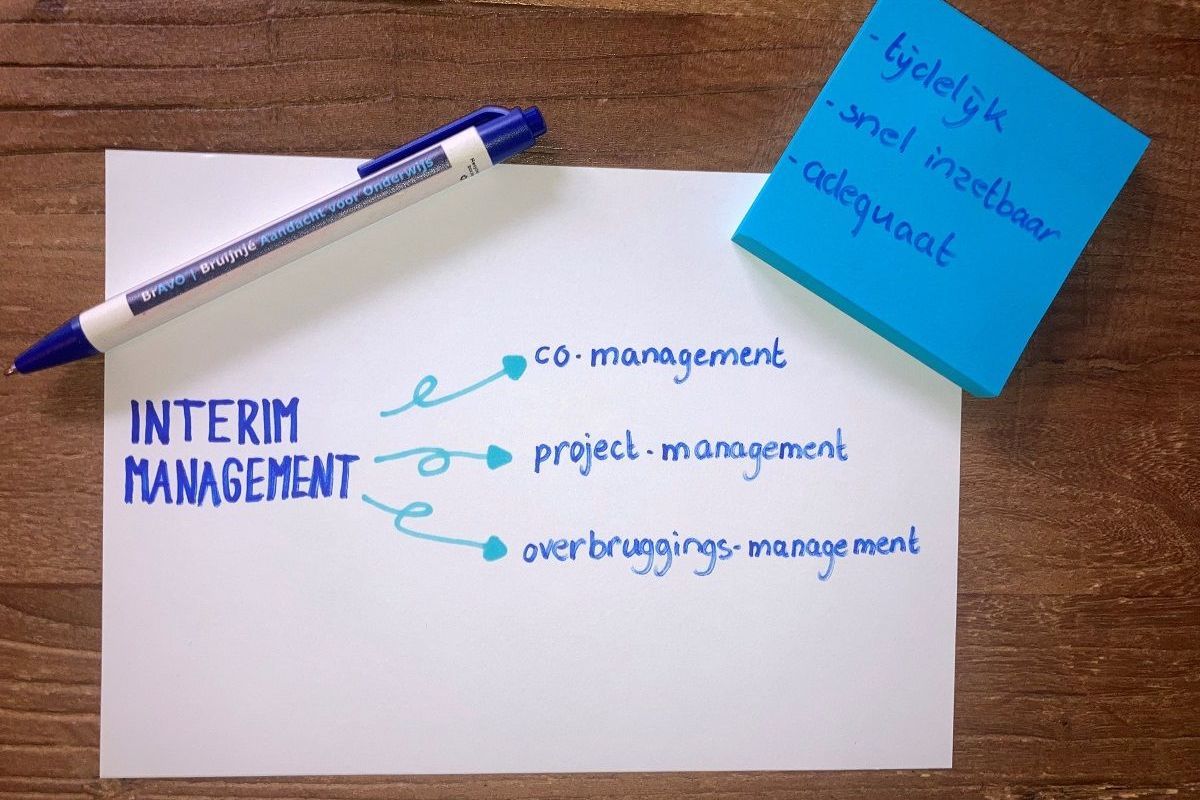 - tijdelijk
- snel inzetbaar
- adequaat
BrAVO | Bruijnjé Aandacht voor Onderwijs
INTERIM
MANAGEMENT
co-management
project-management
overbruggings-management